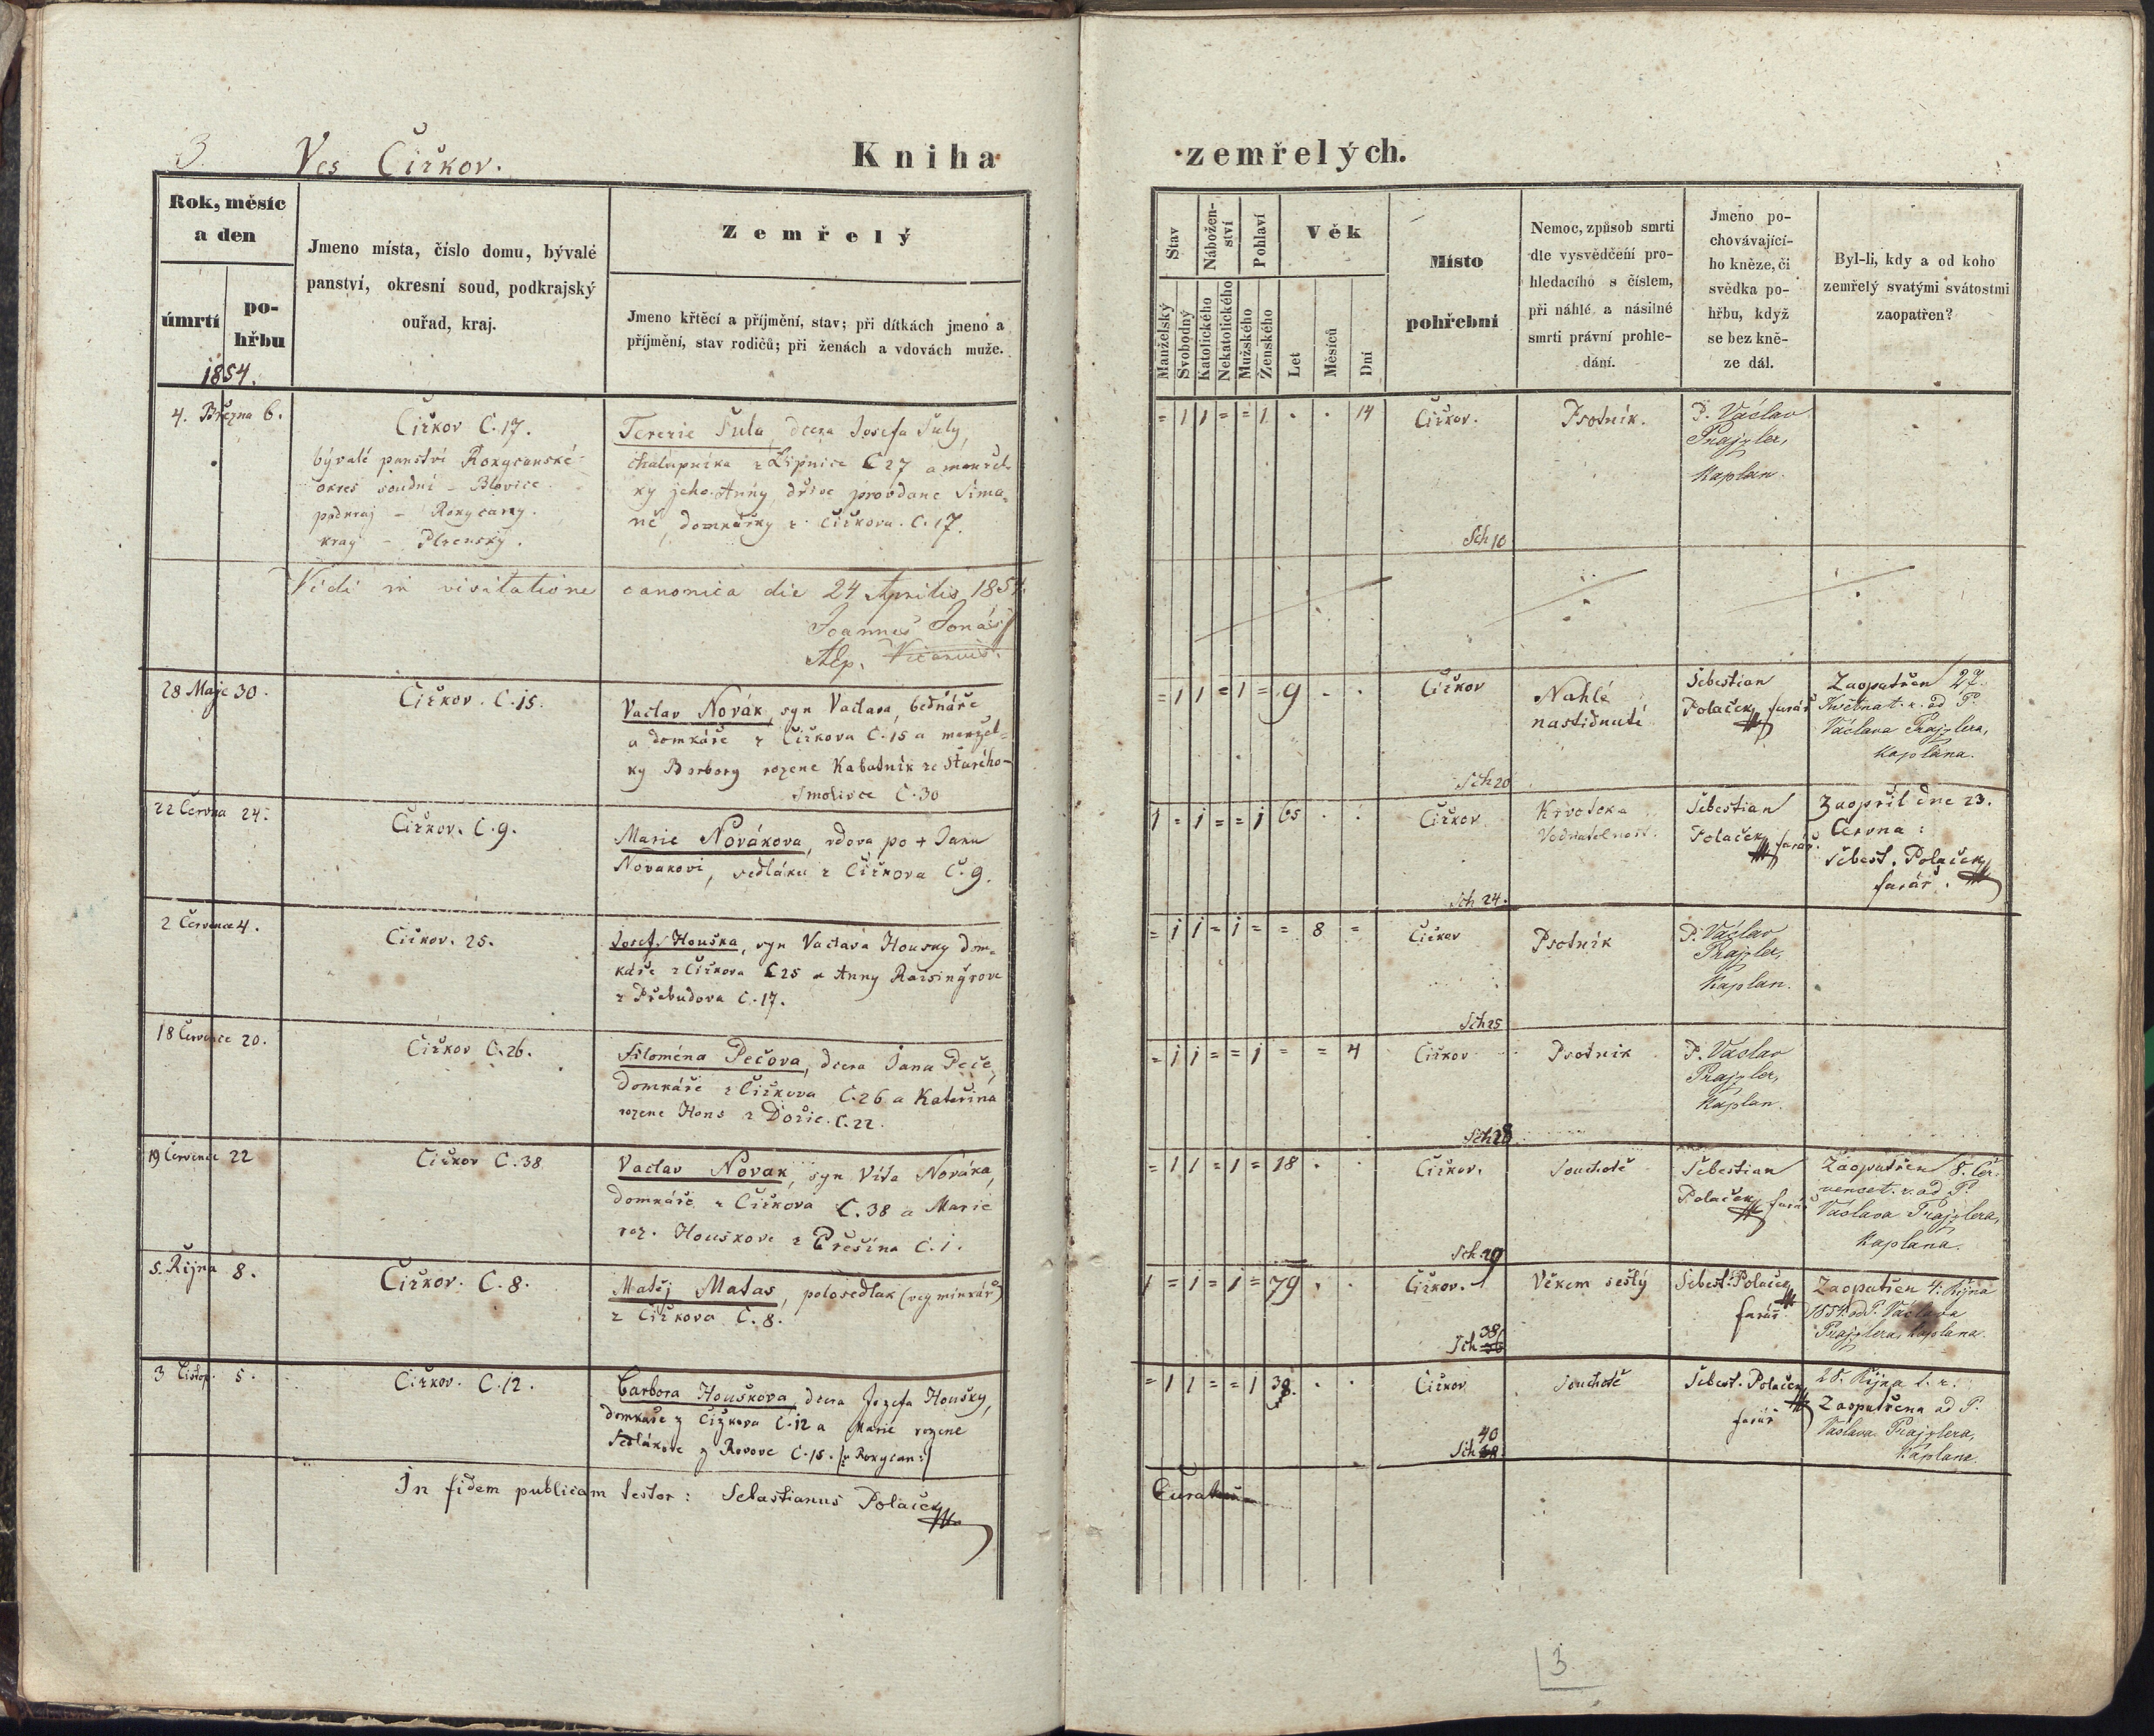 3. Ves Čížkov. Kniha
zemřelých.
Rok, měsíc
a den
úmrtí
po-
hřbu
1854.
Jmeno místa, číslo domu, bývalé
panství, okresní soud, podkrajský
ouřad, kraj.
Zemřelý
Jmeno křtěcí a příjmění, stav; při dítkách jmeno a
příjmění, stav rodičů; při ženách a vdovách muže.
Stav
Nábožen-
ství
Pohlaví
Věk
Manželský
Svobodný
Katolického
Nekatolického
Mužského
Ženského
Let
Měsíců
Dní
Místo
pohřební
Nemoc, způsob smrti
dle vysvědčení pro-
hledacího s číslem,
při náhlé a násilné
smrti právní prohle-
dání.
Jmeno po-
chovávající-
ho kněze, či
svědka po-
hřbu, když
se bez kně-
ze dál.
Byl-li, kdy a od koho
zemřelý svatými svátostmi
zaopatřen?
4. Března 6.
Čížkov C. 17.
bývalé panství Rokycanské
okres soudní - Blovice
podkraj - Rokycany.
kraj - Plzenský.
Terezie Šula, dcera Josefa Šuly,
chalupníka z Lipnice C 27 a manžel-
ky jeho Anny, dříve provdane Šima-
domkářky z Čížkova. C. 17.
= 1 1 = = 1 . . 14
Čížkov.
Sch 10
Psotník.
P. Václav
Prajzler,
Kaplan.
Vidi in visitatione canonica die 24 Aprilis 1854.
Joannes Jonáš
Vicarius.
28 Maje 30.
Čížkov. C. 15.
Vaclav Novák, syn Vaclava, bednáře
a domkáře z Čížkova C. 15 a manžel-
ky Barbory rozene Kabatnik ze Starého-
Smolivce C. 30
= 1 1 = 1 = 9 . .
Čížkov
Sch 20
Nahlé
nastidnutí
Šebestian
Polaček farář
Zaopatřen 27.
Května t. r. od P.
Václava Prajzlera,
kaplána.
22 Června 24.
Čížkov. C. 9.
Marie Novákova, vdova po + Janu
Novakovi, sedláku z Čížkova C. 9.
1 = 1 = = 1 65 . .
Čížkov
Sch 24.
Šebestian
Polaček farář.
Zaopřil dne 23.
Června:
Šebest. Polaček
farář.
2 Července 4.
Čížkov. 25.
Josef Houška, syn Vaclava Housky dom-
káře z Čížkova C 25 a Anny
C. 17.
= 1 1 = 1 = = 8 =
Čížkov
Sch 25
Psotník
P. Václav
Prajzler,
Kaplan.
18 Července 20.
Čížkov C. 26.
Filoména Pečova, dcera Jana Peče,
domkáře z Čížkova C. 26 a Kateřina
rozene Hons z Dožic. C. 22.
= 1 1 = = 1 = = 4
Čížkov
Sch 28
Psotnik
P. Vaclav
Prajzler,
Kaplan.
19 Července 22
Čížkov C. 38
Vaclav Novak, syn Víta Nováka,
domkáře z Čížkova C. 38 a Marie
roz. Houškove z Přešina C. 1.
= 1 1 = 1 = 18 . .
Čížkov.
Sch. 29
Souchotě
Šebestian
Polaček farář
Zaopatřen 8. Čer-
vence t. r. od P.
Václava Prajzlera,
Kaplana.
5. Října 8.
Čížkov. C. 8.
Matěj Matas, polosedlak (vejminkář)
z Čížkova C. 8.
1 = 1 = 1 = 79 . .
Čížkov.
38
Sch
Věkem sešlý
Šebest. Polaček
farář.
Zaopatřen 4. Října
1854. od P. Václava
Prajzlera, kaplana.
3 Listop. 5.
Čížkov. C. 12.
Barbora Houškova, dcera Jozefa Houšky,
domkaře z Čížkova C. 12 a Marie rozene
Sedlákove z Rovove C. 15. /:v Rokycan:/
= 1 1 = = 1 38. . .
Čížkov
40
Sch
Souchotě
Šebest. Polaček
farář
28. Října t. r.
Zaopatřena od P.
Vaslava Prajzlera,
Kaplana.
In fidem publicam testor: Sebastianus Polaček
3